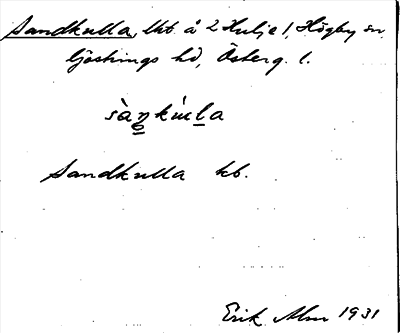 Sandkulla, lht. å 2 Hulje 1, Högby sn,
Göstrings hd, Österg. l.
sàŋkúla
Sandkulla hb.
Erik Alm 1931